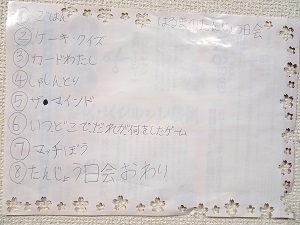 はるきのたんじょう日会
① ごはん
② ケーキ・クイズ
③ カードわたし
④ しゃしんとり
⑤ ザ・マインド
⑥ いつ、どこで、だれが何をしたゲーム
⑦ マッチぼう
⑧ たんじょう日会おわり